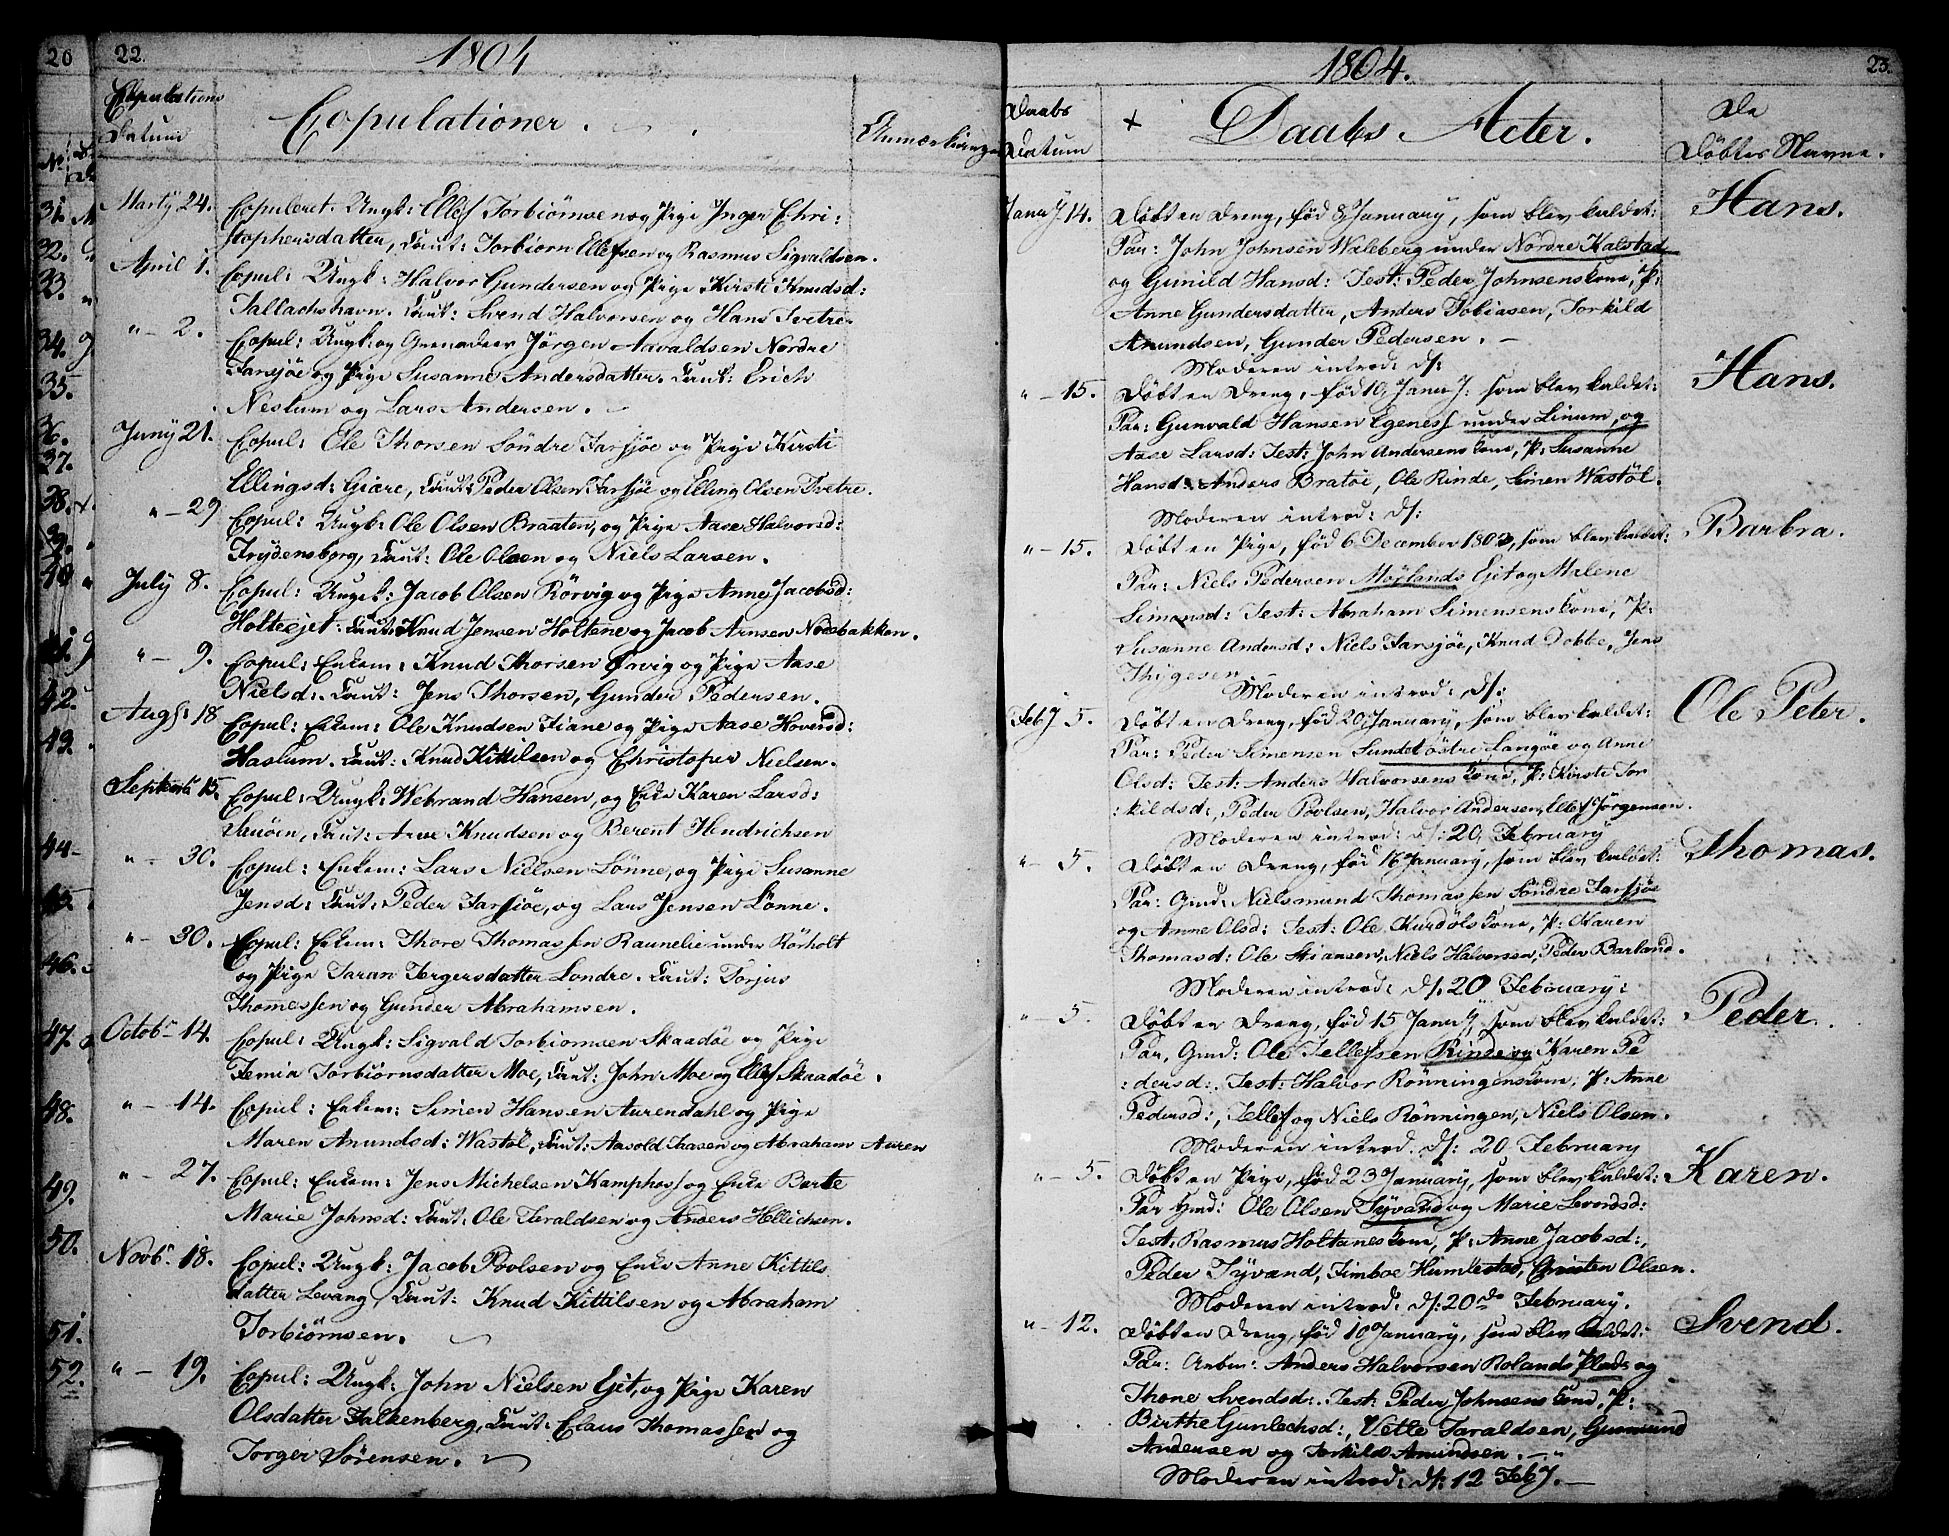 20
No
31.
32.
33.
34.
35.
36.
37.
38.
39.
40
41.
42.
43.
44
45.
46.
47.
48.
49.
50.
51.
52.
22.
1804
Copulations
Datum
Copulationer.
Anmærkninger
Martÿ 24. Copuleret. Ungk: Ellef Torbiörnsen og Pige Inger Chri:
stophersdatter, Caut: Torbiorn Ellefsen og Rasmus Sigvaldsen.
April 1. Copul: Ungk: Halvor Gundersen og Pige Kirsti Knudsd:
Tallachshavn. Caut: Svend Halvorsen og Hans Tvetre
" – 2. Copul: Ungk: og Grenadeer Jörgen Aavaldsen Nordre
Farsjöe og Pige Susanne Andersdatter. Caut: Erich
Neslum og Lars Andersen.
Junÿ 21. Copul: Ole Thorsen Söndre Farsjöe og Pige Kirsti
Ellingsd: Giare, Caut: Peder Olsen Farsjöe og Elling Olsen Tvetre.
" – 29 Copul: Ungk: Ole Olsen Braaten, og Pige Aase Halvorsd:
Frydensborg, Caut: Ole Olsen og Niels Larsen.
July 8. Copul: Ungk: Jacob Olsen Rörvig og Pige Anne Jacobsd:
Holteejet. Caut: Knud Jensen Holtene og Jacob Arnsen
" – 9. Copul: Enkem: Knud Thorsen og Pige Aase
Nielsd:. Caut: Jens Thorsen, Gunder Pedersen.
Augs: 18 Copul: Enkem: Ole Knudsen Fiane og Pige Aase Hoversd:
Haslum. Caut: Knud Kittilsen og Christopher Nielsen.
Septemb: 15. Copul: Ungk: Webrand Hansen, og Enke Karen Larsd:
Caut: Arve Knudsen og Berent Hendrichsen
" – 30. Copul: Enkem: Lars Nielsen Lönne, og Pige Susanne
Jensd: Caut: Peder Farsjöe, og Lars Jensen Lönne.
" – 30. Copul: Enkem: Thore Thomassen Raunelie under Rörholt
og Pige Taran Tergersdatter Londre. Caut: Torjus
Thomessen og Gunder Abrahamsen.
Octobr 14. Copul: Ungk: Sigvald Torbiornsen Skaadöe og Pige
Femia Torbiörnsdatter Moe, Caut: John Moe og Ellef Skaadöe.
" – 14. Copul: Enkem: Simen Hansen Aurendahl og Pige
Maren Anundsd: Wastöl, Caut: Aasold Isasen og Abraham Auren
" – 27. Copul: Enkem: Jens Michelsen Kamphos og Enke Barte
Marie Johnsd: Caut: Ole Taraldsen og Anders Hellichsen.
Novbr 18. Copul: Ungk: Jacob Povlsen og Enke Anne Kittils
datter Levang, Caut: Knud Kittilsen og Abraham
Torbiörnsen.
" – 19. Copul: Ungk: John Nielsen Ejet, og Pige Karen
Olsdatter Falkenberg, Caut: Claus Thomassen og
Torger Sörensen.
1804.
23.
Daabs
Datum
+
Daabs Acter.
De
Döbtes Navne.
Janrÿ 14. Döbt en Dreng, föd 8 Januarÿ, som blev kaldet: Hans.
Par: John Johnsen Waleberg under Nordre Kalstad
og Gunild Hansd: Test: Peder Johnsens kone, P:
Anne Gundersdatter, Anders Tobiasen, Torkild
Anundsen, Gunder Pedersen. –
Moderen introd: ds:
" – 15. Döbt en Dreng, föd 10 Janrÿ: som blev kaldet: Hans.
Par: Gunvald Hansen Egenes under Linum, og
Aase Larsd: Test: John Andersens kone, P: Susanne
Hansd: Anders Bratöe, Ole Rinde, Simen Wastöl.
Moderen introd: ds:
" – 15. Döbt en Pige, föd 6 December 1803, som blev kaldet: Barbra.
Par: Niels Pedersen Mörlands Ejet og Malene
Simonsd: Test: Abraham Simensens kone, P:
Susanne Andersd: Niels Farsjöe, Knud Dobbe, Jens
Thigesen
Moderen introd: ds:
Febÿ 5. Döbt en Dreng, föd 20 Januarÿ, som blev kaldet: Ole Peter.
Par: Peder Simensen Sundet östre Langöe og Anne
Olsd: Test: Anders Halvorsens kone, P: Kirsti Tor
:kildsd:, Peder Povlsen, Halvor Andersen, Ellef Jörgensen.
Moderen introd: ds: 20 Februarÿ
" – 5. Döbt en Dreng, föd 16 Januarÿ, som blev kaldet: Thomas.
Par: Gmd: Nielsmund Thomassen Söndre Farsjöe
og Anne Olsd: Test: Ole Kurdöls kone, P: Karen
Thomasd: Ole Stiansen, Niels Halvorsen, Peder Barland.
Moderen introd: ds: 20 Februarÿ:
" – 5. Döbt en Dreng, föd 15 Janrÿ, som blev kaldet: Peder.
Par, Gmd: Ole Tellefsen Rinde og Karen Pe
:dersd:. Test: Halvor Rönningens kone, P: Anne
Pedersd:, Tellef og Niels Rönningen, Niels Olsen.
Moderen introd. ds: 20 Februarÿ
" – 5. Döbt en Pige, föd 23 Januarÿ, som blev kaldet: Karen.
Par Gmd: Ole Olsen Tÿvand og Marie Levordsd:
Test: Rasmus Holtanes kone, P: Anne Jacobsd:,
Peder Tyvand, Timboe Humlestad, Olsen.
Moderen introd. ds: 20de Februarÿ.
" – 12. Döbt en Dreng, föd 10 Januarÿ, som blev kaldet: Svend.
Par: Arbm: Anders Halvorsen Rolands Plads og
Thone Svendsd:. Test: Peder Johnsens kone, P:
Birthe Gunlechsd:, Vetle Taraldsen, Gunmund
Andersen og Torkild Amundsen. –
Moderen introd: ds: 12 Febÿ. –